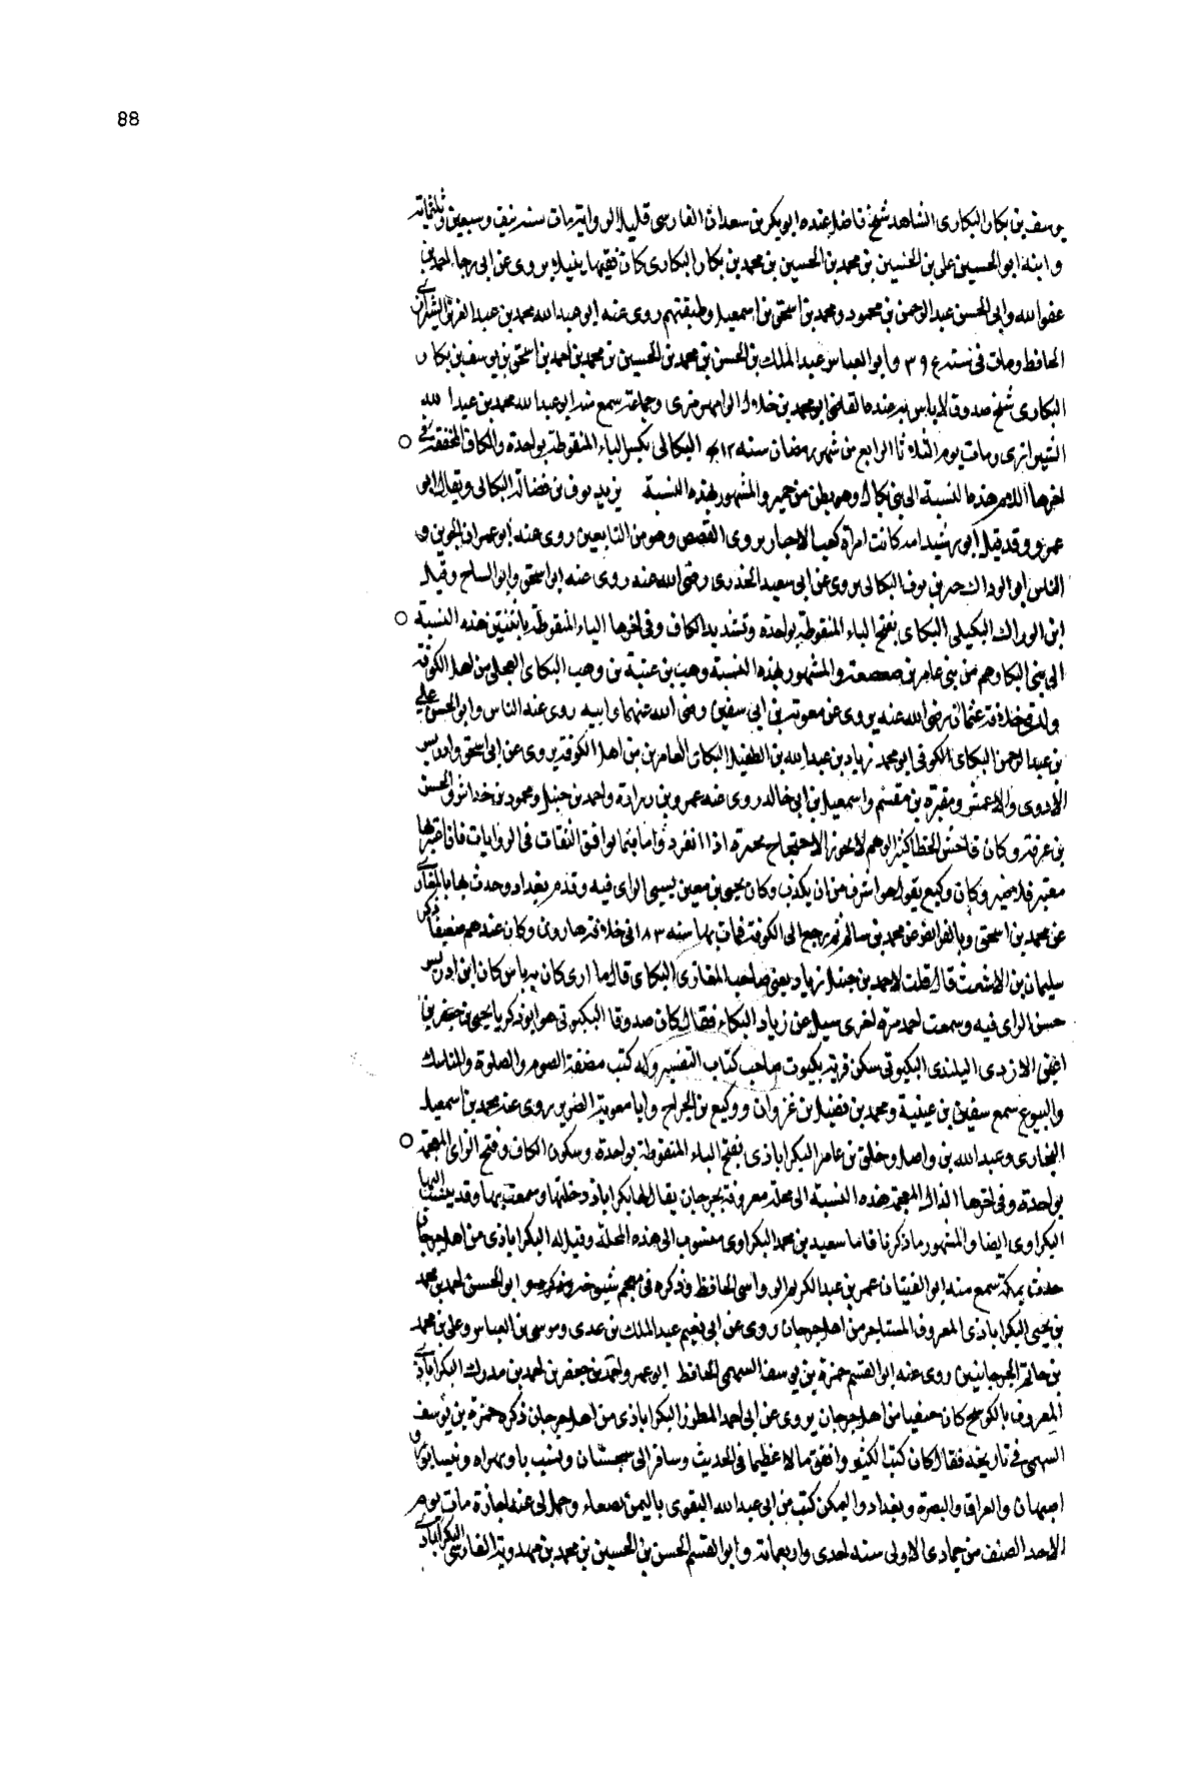 88
يوسف بن بكار البكارى الشاهد شيخ فاضل عنده ابو بكر بن سعدان الفارسى قليل الرواية مات سنة نيف وسبعين وثلثمائة
وابنه ابو الحسين على بن الحسين بن محمد بن الحسين بن محمد بن بكار البكارى كان فقيها نبيلا يروى عن ابى رجا احمد بن
عفو الله وابى الحسن عبد الرحمن بن محمود ومحمد بن اسحق بن اسمعيل وطبقتهم روى عنه ابو عبد الله محمد بن عبد العزيز الشيرازى
الحافظ ومات فى سنة وابو العباس عبد الملك بن الحسن بن محمد بن الحسين بن محمد بن احمد بن اسحق بن يوسف بن بكار
البكارى شيخ صدوق لا باس به عنده القاضى ابو محمد بن خلاد الرامهرمزى وجماعة سمع منه ابو عبد الله محمد بن عبد الله
الشيرازى ومات يوم الثلاثا الرابع من شهر رمضان سنه البكالى بكسر الباء المنقوطة بواحدة والكاف المخففة وفى
اخرها اللام هذه النسبة الى بنى بكال وهو بطن من حمير والمشهور بهذه النسبة يزيد نوف بن فضالة البكالى ويقال ابو
عمرو وقد قيل ابو رشيد امه كانت امراة كعب الاحبار يروى القصص وهو من التابعين روى عنه ابو عمران الجونى و
الناس ابو الوداك جبر بن نوف البكالى يروى عن ابى سعيد الخدرى رضى الله عنه روى عنه ابو اسحق وابو السلح وقيل
ابن الوداك البكيلى البكاى بفتح الباء المنقوطة بواحدة وتشديد الكاف وفى اخرها الياء المنقوطة باثنتين هذه النسبة
الى بنى البكا وهم من بنى عامر بن صعصعة والمشهور بهذه النسبة وهب بن عتبة بن وهب البكاى العجلى من اهل الكوفة
ولد فى خلافة عثمان رضى الله عنه يروى عن معوية بن ابى سفين رضى الله عنهما وابيه روى عنه الناس وابو الحسن على
بن عبد الرحمن البكاى الكوفى ابو محمد زياد بن عبد الله بن الطفيل البكاى العامرى من اهل الكوفة يروى عن ابى اسحق وادريس
الاودى والاعمش ومغيرة بن مقسم واسمعيل بن ابى خالد روى عنه عمرو بن زرارة واحمد بن حنبل ومحمود بن خداش والحسن
بن عرفة وكان فاحش الخطا كثير الوهم لا يجوز الاحتجاج بخبره اذا انفرد واما فيما وافق الثقات فى الروايات فان اعتبرها
معتبر فلا ضير وكان وكيع يقول هو اشرف من ان يكذب وكان يحيى بن معين يسىء الراى فيه وقدم بغداد وحدث بها بالمغازى
عن محمد بن اسحق وبالفرائض عن محمد بن سالم ثم رجع الى الكوفة فمات بها سنه ١٨٣ فى خلافة هارون وكان عندهم ضعيفا ذكر
سليمان بن الاشعث قال قلت لاحمد بن حنبل زياد يعنى صاحب المغازى البكاى قال ما ارى كان به باس كان ابن ادريس
حسن الراى فيه وسمعت احمد مرة اخرى سيل عن زياد البكاء فقال كان صدوقا البكيوتى هو ابو زكريا يحيى بن جعفر بن
اعين الازدى البيكندى البكيوتى سكن قرية بكيوت صاحب كتاب التفسير وله كتب مصنفة الصوم والصلوة والمناسك
والبيوع سمع سفين بن عيينة ومحمد بن فضيل بن غزوان ووكيع بن الجراح وابا معوية الضرير روى عنه محمد بن اسمعيل
البخارى وعبد الله بن واصل وخلق بن عامر البكراباذى بفتح الباء المنقوطة بواحدة وسكون الكاف وفتح الراى المعجمة
بواحدة وفى اخرها الذال المعجمة هذه النسبة الى محلة معروفة بجرجان يقال لها بكراباذ دخلتها وسمعت بها وقد ينسب اليها
البكراوى ايضا والمشهور ما ذكرنا فاما سعيد بن محمد البكراوى منسوب الى هذه المحلة وقيل له البكراباذى من اهل جرجان
حدث بمكة سمع منه ابو الفتيان عمر بن عبد الكريم الرواسى الحافظ وذكره فى معجم شيوخه ابو الحسن احمد بن محمد
بن يحيى البكراباذى المعروف المستاجر من اهل جرجان روى عن ابى نعيم عبد الملك بن عدى وموسى بن العباس وعلى بن محمد
بن حاتم الجرجانيين روى عنه ابو القسم حمزة بن يوسف السهمى الحافظ ابو عمرو احمد بن جعفر بن احمد بن مدرك البكراباذى
المعروف بالكوسج كان حنفيا من اهل جرجان يروى عن ابى احمد المطرز البكراباذى من اهل جرجان ذكره حمزة بن يوسف
السهمى فى تاريخه فقال كان كتب الكثير وانفق مالا عظيما فى الحديث وسافر الى سجستان وهراه ونيسابور و
اصبهان والعراق والبصرة وبغداد واليمن كتب عن ابى عبد الله النقوى باليمن بصنعاء وحمل الى عنه اجازة مات يوم
الاحد النصف من جمادى الاولى سنه احدى واربعمائة وابو القسم الحسن بن الحسين بن محمد بن مهدوية الفارسى البكراباذى